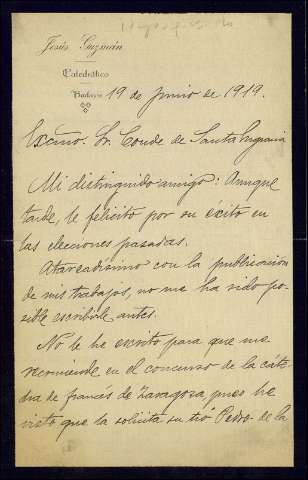 Jesús Guzmán
Catedrático
Badajoz 19 de Junio de 1919.
Excmo Sr. Conde de Santa Engracia
Mi distinguido amigo: Aunque
tarde, le felicito por su éxito en
las elecciones pasadas.
Atareadísimo con la publicacion
de mis trabajos, no me ha sido po-
sible escribirle antes.
No le he escrito para que me
recomiende en el concurso de la cáte-
dra de francés de Zaragoza, pues he
visto que la solicita su tio Pedro de la